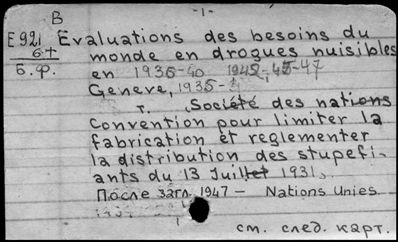 -1-
B
E921 Evaluations des besoins du
6+ monde en drogues nuisibles
Б.ф. en 1936-40 1942, 45-47
Geneve, 1935-
т. Société des nations
Convention pour limiter la
fabrication et reglementer
la distribution des stupefi-
ants du 13 Juillet 1931.
После загл. 1947 - Nations Unies
см. след. карт.